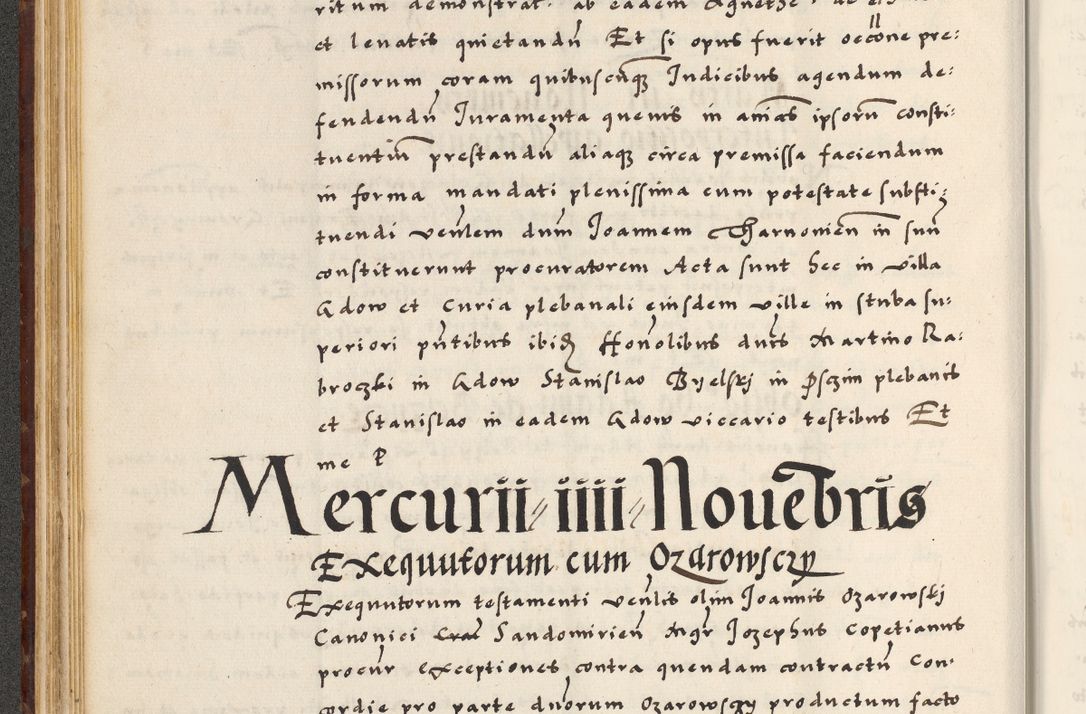 ritum demonstrat. ab eadem
et levatis quietandũ Et si opus fuerit occõne pre:
missorum coram quibuscũqʒ Iudicibus agendum de:
fendendũ Iuramenta quevis in aniãs ipsorũ consti:
tuentiũ prestandũ aliaqʒ circa premissa faciendum
in forma mandati plenissima cum potestate substi:
tuendi venlem dum Joannem Tharnovien̄ in suũ
constituerunt procuratorem Acta sunt hec in villa
Gdow et Curia plebanali eiusdem ville in stuba su:
periori pñtibus ibidʒ Honolibus duis Martino Ra:
broczki in Gdow Stanislao Byelski in Psczin plebanis
et Stanislao in eadem Gdow viccario testibus Et
me P
Mercurii iiii Nouēbris
Exequutorum cum Ozarowsczy
Exequutorum testamenti venlis olim Joannis Ozarowski
Canonici Crac̄ Sandomirien̄ Mgr Jozephus Copetianus
procur exceptiones contra quendam contractũ Con:
cordie pro parte duorum Ozarowsczy productum facto